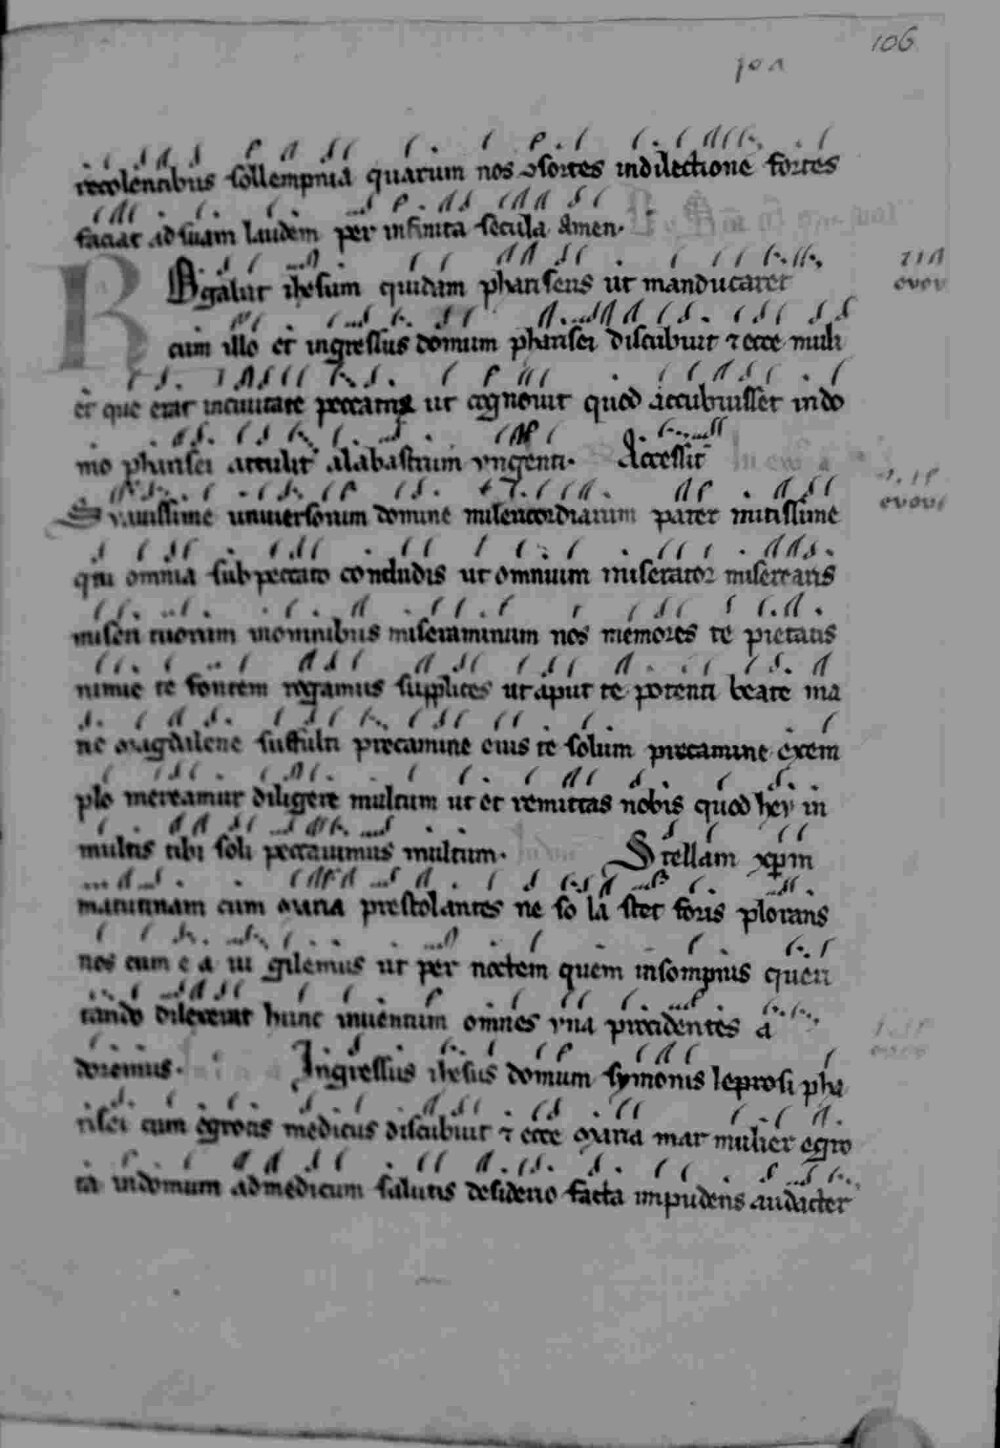 106
recolentibus sollempnia quarum nos ↄsortes indilectione fortes
faciat ad suam laudem per infinita secula Amen.
Rogabat ihesum quidam phariseus ut manducaret
cum illo et ingressus domum pharisei discubuit ⁊ ecce muli
er que erat incivitate peccatrix ut cognovit quod accubuisset in do
mo pharisei attulit alabastrum ungenti. Accessit
evov
Suavissime universorum domine misericordiarum pater mitissime
evovs
qui omnia sub peccato concludis ut omnium miserator miserearis
miseri tuorum inominibus miseraminum nos memores te pietatis
nimie te fontem rogamus supplices ut aput te potenti beate ma
rie magdalene suffulti precamine eius te solum precamine exem
plo mereamur diligere multum ut et remittas nobis quod hey in
multis tibi soli peccavimus multum. Stellam xpm
matutinam cum maria prestolantes ne so la stet foris plorans
nos cum e a vi gilemus ut per noctem quem insompnis queri
tando dilexerat hunc inventum omnes una procidentes a
doremus. Ingressus ihesus domum symonis leprosi pha
risei cum egrotis medicus discubuit ⁊ ecce maria mar mulier egro
ta indomum admedicum salutis desiderio facta impudens audacter